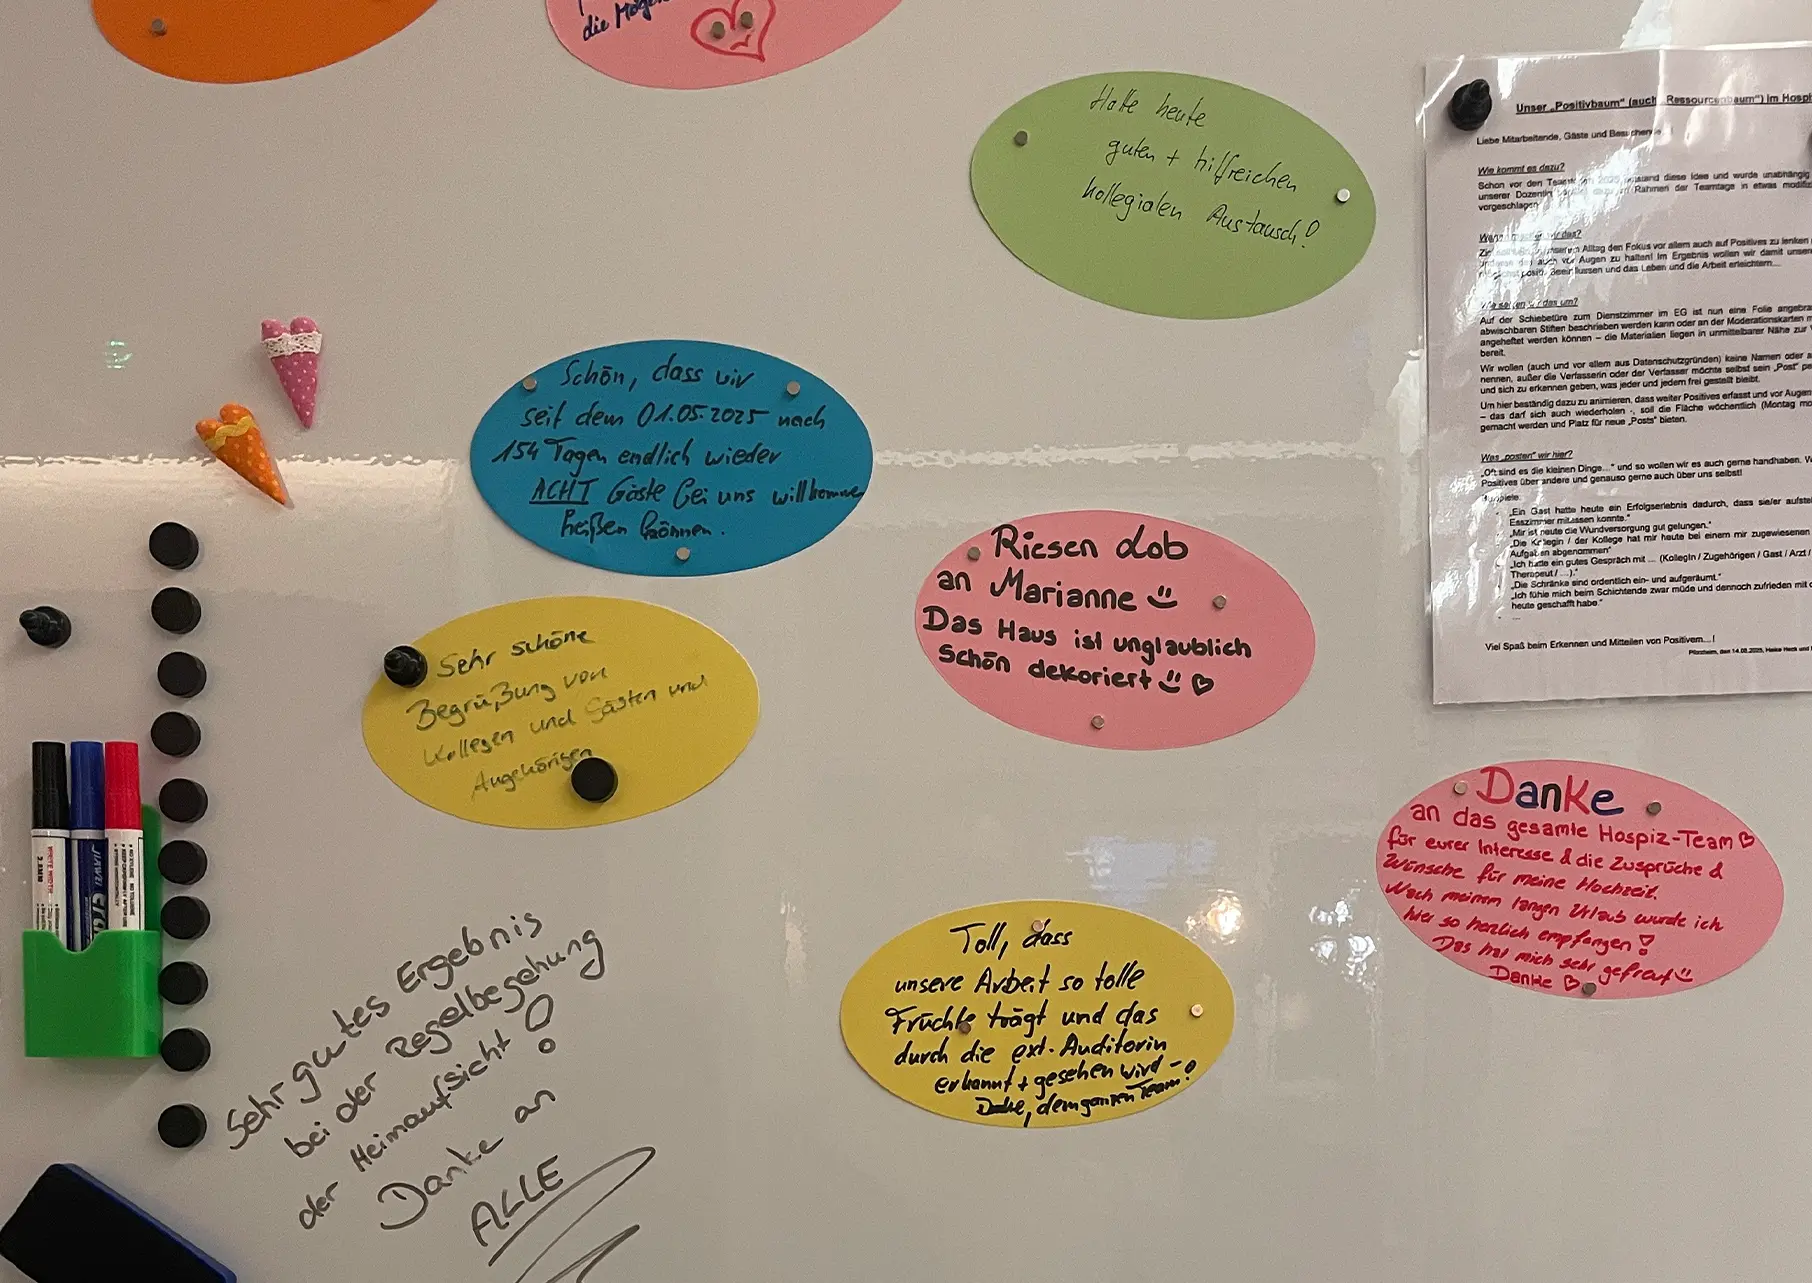 die Mögen
Hatte heute
guten + hilfreichen
kollegialen Austausch!
Unser „Positivbaum“ (auch „Ressourcenbaum“) im Hospi
Liebe Mitarbeitende, Gäste und Besuchende...!
Wie kommt es dazu?
Schon vor den 2025 entstand diese Idee und wurde unabhängig
unserer Rahmen der Teamtage in etwas modifiz
vorgeschlagen
Alltag den Fokus vor allem auch auf Positives zu lenken
auch vor Augen zu halten! Im Ergebnis wollen wir damit unsere
beeinflussen und das Leben und die Arbeit erleichtern...
Wie setzen wir das um?
Auf der Schiebetüre zum Dienstzimmer im EG ist nun eine Folie angebra
abwischbaren Stiften beschrieben werden kann oder an der Moderationskarten m
angeheftet werden können – die Materialien liegen in unmittelbarer Nähe zur
bereit.
Wir wollen (auch und vor allem aus Datenschutzgründen) keine Namen oder a
nennen, außer die Verfasserin oder der Verfasser möchte selbst sein „Post“ pe
und sich zu erkennen geben, was jeder und jedem frei gestellt bleibt.
Um hier beständig dazu zu animieren, dass weiter Positives erfasst und vor Augen
– das darf sich auch wiederholen -, soll die Fläche wöchentlich (Montag mo
gemacht werden und Platz für neue „Posts“ bieten.
Was „posten“ wir hier?
„Oft sind es die kleinen Dinge...“ und so wollen wir es auch gerne handhaben. W
Positives über andere und genauso gerne auch über uns selbst!
Beispiele:
„Ein Gast hatte heute ein Erfolgserlebnis dadurch, dass sie/er aufste
Esszimmer mitessen konnte.“
„Mir ist heute die Wundversorgung gut gelungen.“
„Die Kollegin / der Kollege hat mir heute bei einem mir zugewiesenen
Aufgaben abgenommen“
„Ich hatte ein gutes Gespräch mit ... (KollegIn / Zugehörigen / Gast / Arzt /
Therapeut / ...).“
„Die Schränke sind ordentlich ein- und aufgeräumt.“
„Ich fühle mich beim Schichtende zwar müde und dennoch zufrieden mit d
heute geschafft habe.“
...
Viel Spaß beim Erkennen und Mitteilen von Positivem...!
Pforzheim, den 14.08.2025, Heike Heck und
Schön, dass wir
seit dem 01.05.2025 nach
154 Tagen endlich wieder
ACHT Gäste bei uns willkommen
heißen können.
Riesen Lob
an Marianne
Das Haus ist unglaublich
schön dekoriert
Sehr schöne
Begrüßung von
Kollegen und Gästen und
Angehörigen
Danke
an das gesamte Hospiz-Team
für eurer Interesse & die Zusprüche &
Wünsche für meine Hochzeit.
Nach meinem langen Urlaub wurde ich
hier so herzlich empfangen!
Das hat mich sehr gefreut
Danke
Toll, dass
unsere Arbeit so tolle
Früchte trägt und das
durch die ext. Auditorin
erkannt + gesehen wird -!
Danke, dem ganzen Team!
Sehr gutes Ergebnis
bei der Regelbegehung
der Heimaufsicht!
Danke an
ALLE